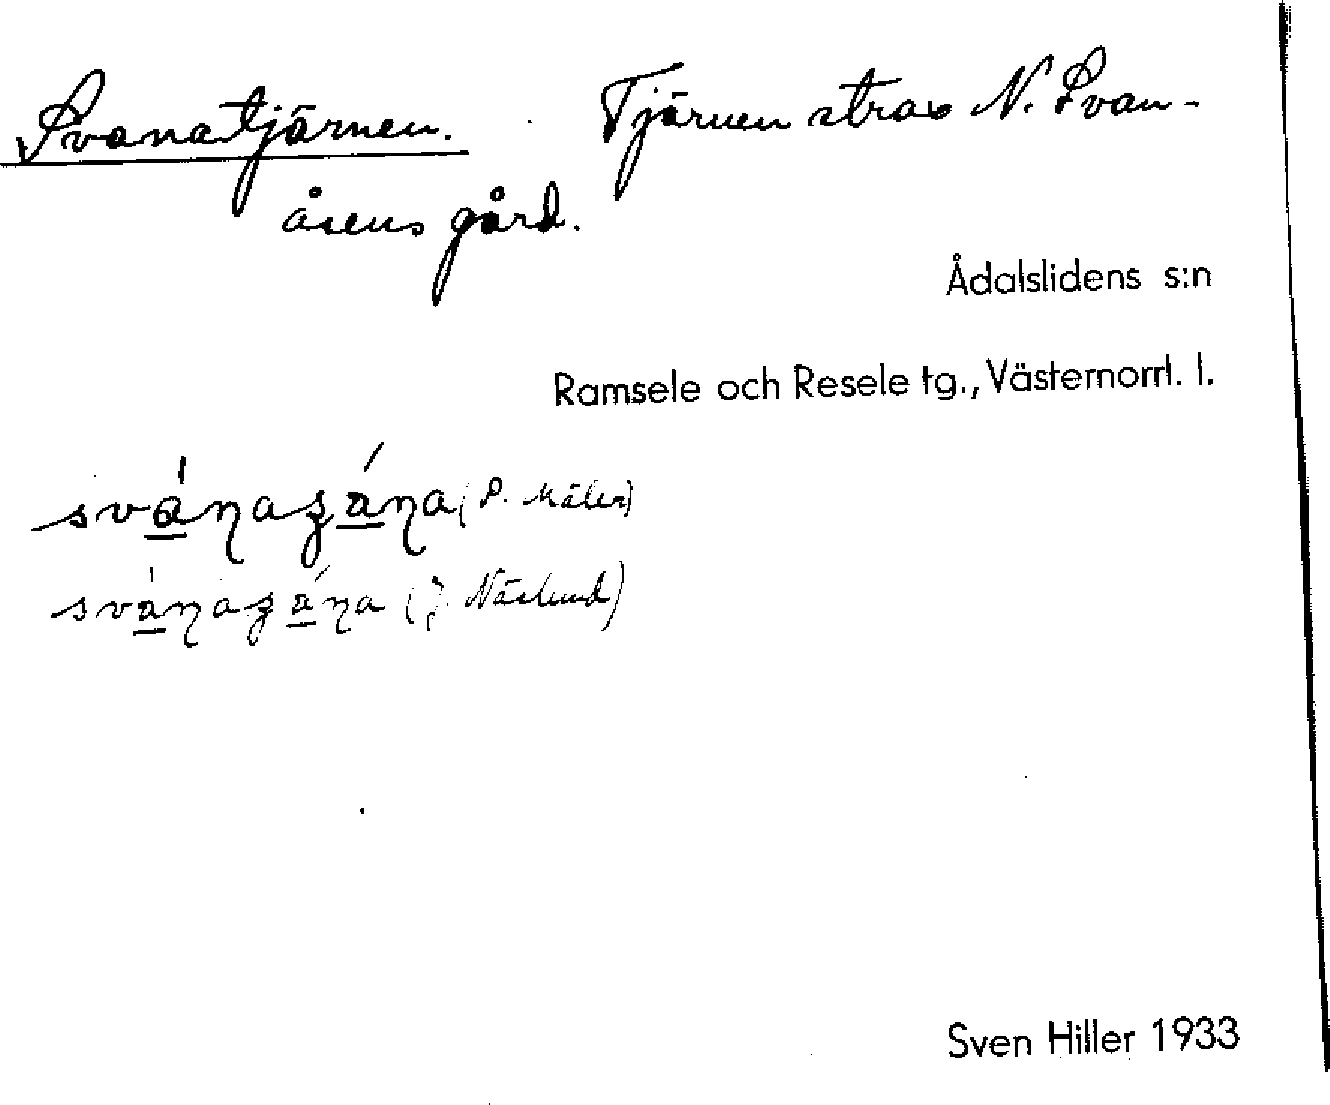 Svanatjärnen. Tjärnen strax N. Svan-
åsens gård.
Ådalslidens s:n
Ramsele och Resele tg., Västernorrl. l.
(P. Mäler)
(J. Näslund)
Sven Hiller 1933